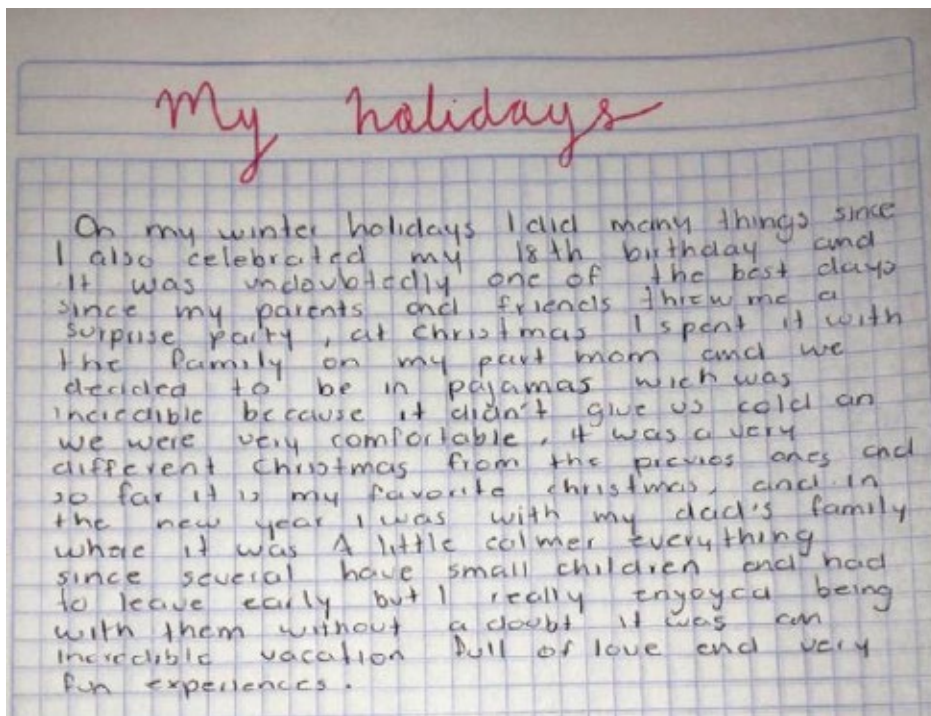 My holidays
On my winter holidays I did many things since
I also celebrated my 18th birthday and
It was undoubtedly one of the best days
since my parents and friends threw me a
surprise party, at christmas I spent it with
the family on my part mom and we
decided to be in pajamas wich was
incredible because it didn't give us cold an
we were very comfortable, it was a very
different christmas from the previos ones and
so far it is my favorite christmas, and in
the new year I was with my dad's family
whore it was A little calmer everything
since several have small children and had
to leave early but I really engoyed being
with them without a doubt it was an
incredible vacation full of love and very
fun experiences.